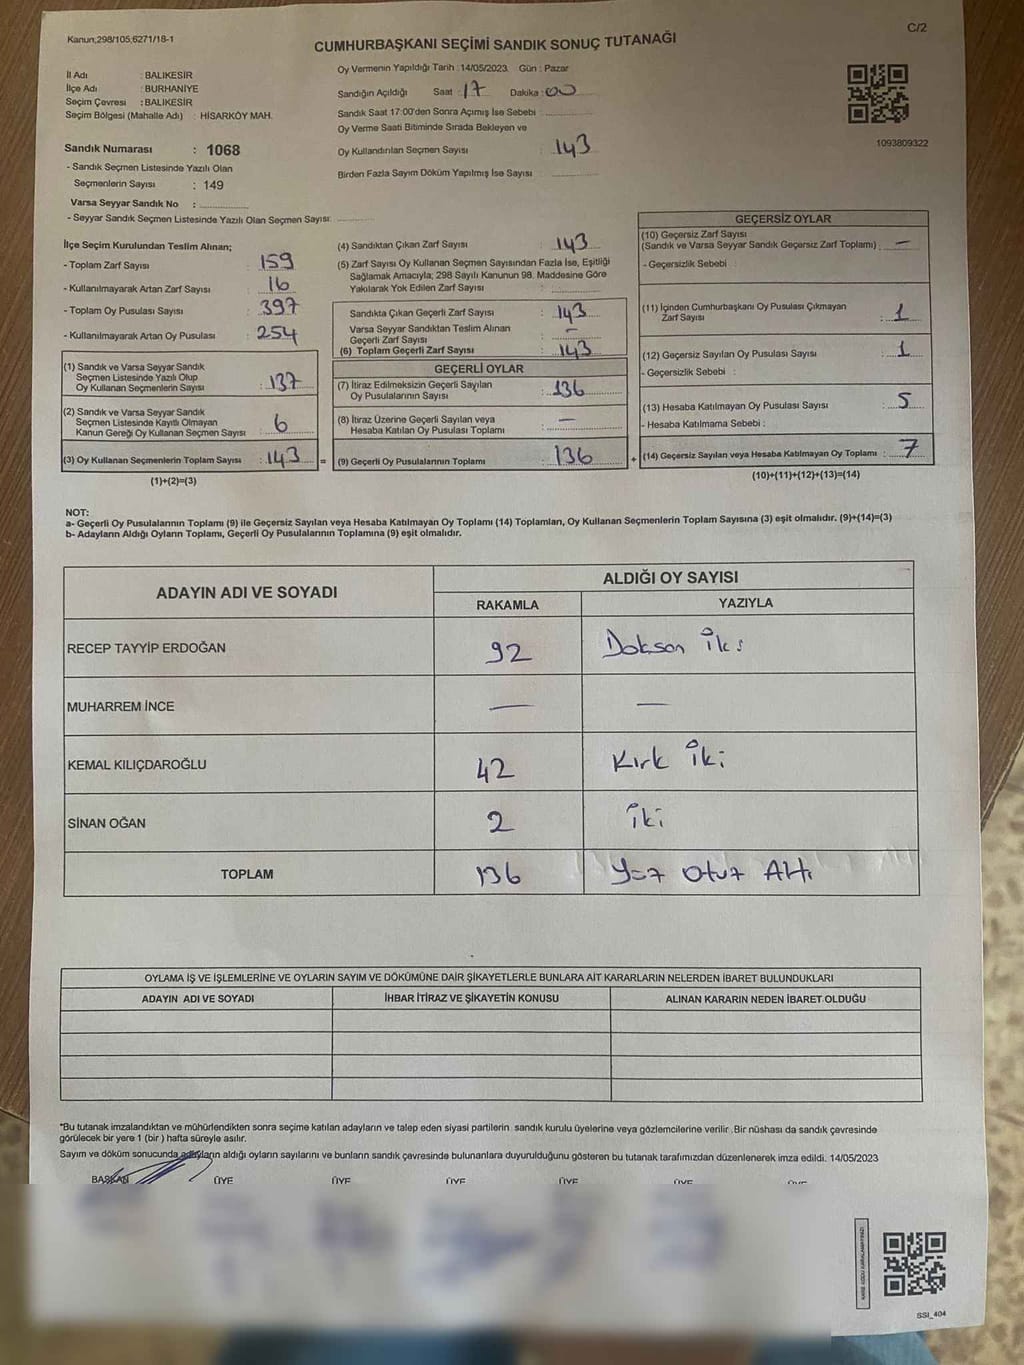 C/2
Kanun;298/105,6271/18-1
CUMHURBAŞKANI SEÇİMİ SANDIK SONUÇ TUTANAĞI
İl Adı : BALIKESİR
İlçe Adı : BURHANİYE
Seçim Çevresi : BALIKESİR
Seçim Bölgesi (Mahalle Adı) : HİSARKÖY MAH.
Sandık Numarası : 1068
- Sandık Seçmen Listesinde Yazılı Olan
Seçmenlerin Sayısı : 149
Varsa Seyyar Sandık No :
- Seyyar Sandık Seçmen Listesinde Yazılı Olan Seçmen Sayısı:
Oy Vermenin Yapıldığı Tarih : 14/05/2023 Gün : Pazar
Sandığın Açıldığı Saat : 17 Dakika : 00
Sandık Saat 17:00'den Sonra Açımış İse Sebebi :
Oy Verme Saati Bitiminde Sırada Bekleyen ve
Oy Kullandırılan Seçmen Sayısı : 143
Birden Fazla Sayım Döküm Yapılmış İse Sayısı :
1093809322
İlçe Seçim Kurulundan Teslim Alınan;
- Toplam Zarf Sayısı : 159
- Kullanılmayarak Artan Zarf Sayısı : 16
- Toplam Oy Pusulası Sayısı : 397
- Kullanılmayarak Artan Oy Pusulası : 254
(1) Sandık ve Varsa Seyyar Sandık
Seçmen Listesinde Yazılı Olup
Oy Kullanan Seçmenlerin Sayısı : 137
(2) Sandık ve Varsa Seyyar Sandık
Seçmen Listesinde Kayıtlı Olmayan
Kanun Gereği Oy Kullanan Seçmen Sayısı : 6
(3) Oy Kullanan Seçmenlerin Toplam Sayısı : 143 =
(1)+(2)=(3)
(4) Sandıktan Çıkan Zarf Sayısı : 143
(5) Zarf Sayısı Oy Kullanan Seçmen Sayısından Fazla İse, Eşitliği
Sağlamak Amacıyla; 298 Sayılı Kanunun 98. Maddesine Göre
Yakılarak Yok Edilen Zarf Sayısı :
Sandıkta Çıkan Geçerli Zarf Sayısı : 143
Varsa Seyyar Sandıktan Teslim Alınan
Geçerli Zarf Sayısı : —
(6) Toplam Geçerli Zarf Sayısı : 143
GEÇERLİ OYLAR
(7) İtiraz Edilmeksizin Geçerli Sayılan
Oy Pusulalarının Sayısı : 136
(8) İtiraz Üzerine Geçerli Sayılan veya
Hesaba Katılan Oy Pusulası Toplamı : —
(9) Geçerli Oy Pusulalarının Toplamı : 136 +
GEÇERSİZ OYLAR
(10) Geçersiz Zarf Sayısı
(Sandık ve Varsa Seyyar Sandık Geçersiz Zarf Toplamı) : —
- Geçersizlik Sebebi :
(11) İçinden Cumhurbaşkanı Oy Pusulası Çıkmayan
Zarf Sayısı : 1
(12) Geçersiz Sayılan Oy Pusulası Sayısı : 1
- Geçersizlik Sebebi :
(13) Hesaba Katılmayan Oy Pusulası Sayısı : 5
- Hesaba Katılmama Sebebi :
(14) Geçersiz Sayılan veya Hesaba Katılmayan Oy Toplamı : 7
(10)+(11)+(12)+(13)=(14)
NOT:
a- Geçerli Oy Pusulalarının Toplamı (9) ile Geçersiz Sayılan veya Hesaba Katılmayan Oy Toplamı (14) Toplamları, Oy Kullanan Seçmenlerin Toplam Sayısına (3) eşit olmalıdır. (9)+(14)=(3)
b- Adayların Aldığı Oyların Toplamı, Geçerli Oy Pusulalarının Toplamına (9) eşit olmalıdır.
ADAYIN ADI VE SOYADI
ALDIĞI OY SAYISI
RAKAMLA YAZIYLA
RECEP TAYYİP ERDOĞAN 92 Doksan iki
MUHARREM İNCE — —
KEMAL KILIÇDAROĞLU 42 Kırk iki
SİNAN OĞAN 2 iki
TOPLAM 136 Yüz Otuz Altı
OYLAMA İŞ VE İŞLEMLERİNE VE OYLARIN SAYIM VE DÖKÜMÜNE DAİR ŞİKAYETLERLE BUNLARA AİT KARARLARIN NELERDEN İBARET BULUNDUKLARI
ADAYIN ADI VE SOYADI İHBAR İTİRAZ VE ŞİKAYETİN KONUSU ALINAN KARARIN NEDEN İBARET OLDUĞU
*Bu tutanak imzalandıktan ve mühürlendikten sonra seçime katılan adayların ve talep eden siyasi partilerin sandık kurulu üyelerine veya gözlemcilerine verilir. Bir nüshası da sandık çevresinde
görülecek bir yere 1 (bir ) hafta süreyle asılır.
Sayım ve döküm sonucunda adayların aldığı oyların sayılarını ve bunların sandık çevresinde bulunanlara duyurulduğunu gösteren bu tutanak tarafımızdan düzenlenerek imza edildi. 14/05/2023
BAŞKAN ÜYE ÜYE ÜYE ÜYE ÜYE ÜYE
SSI_404